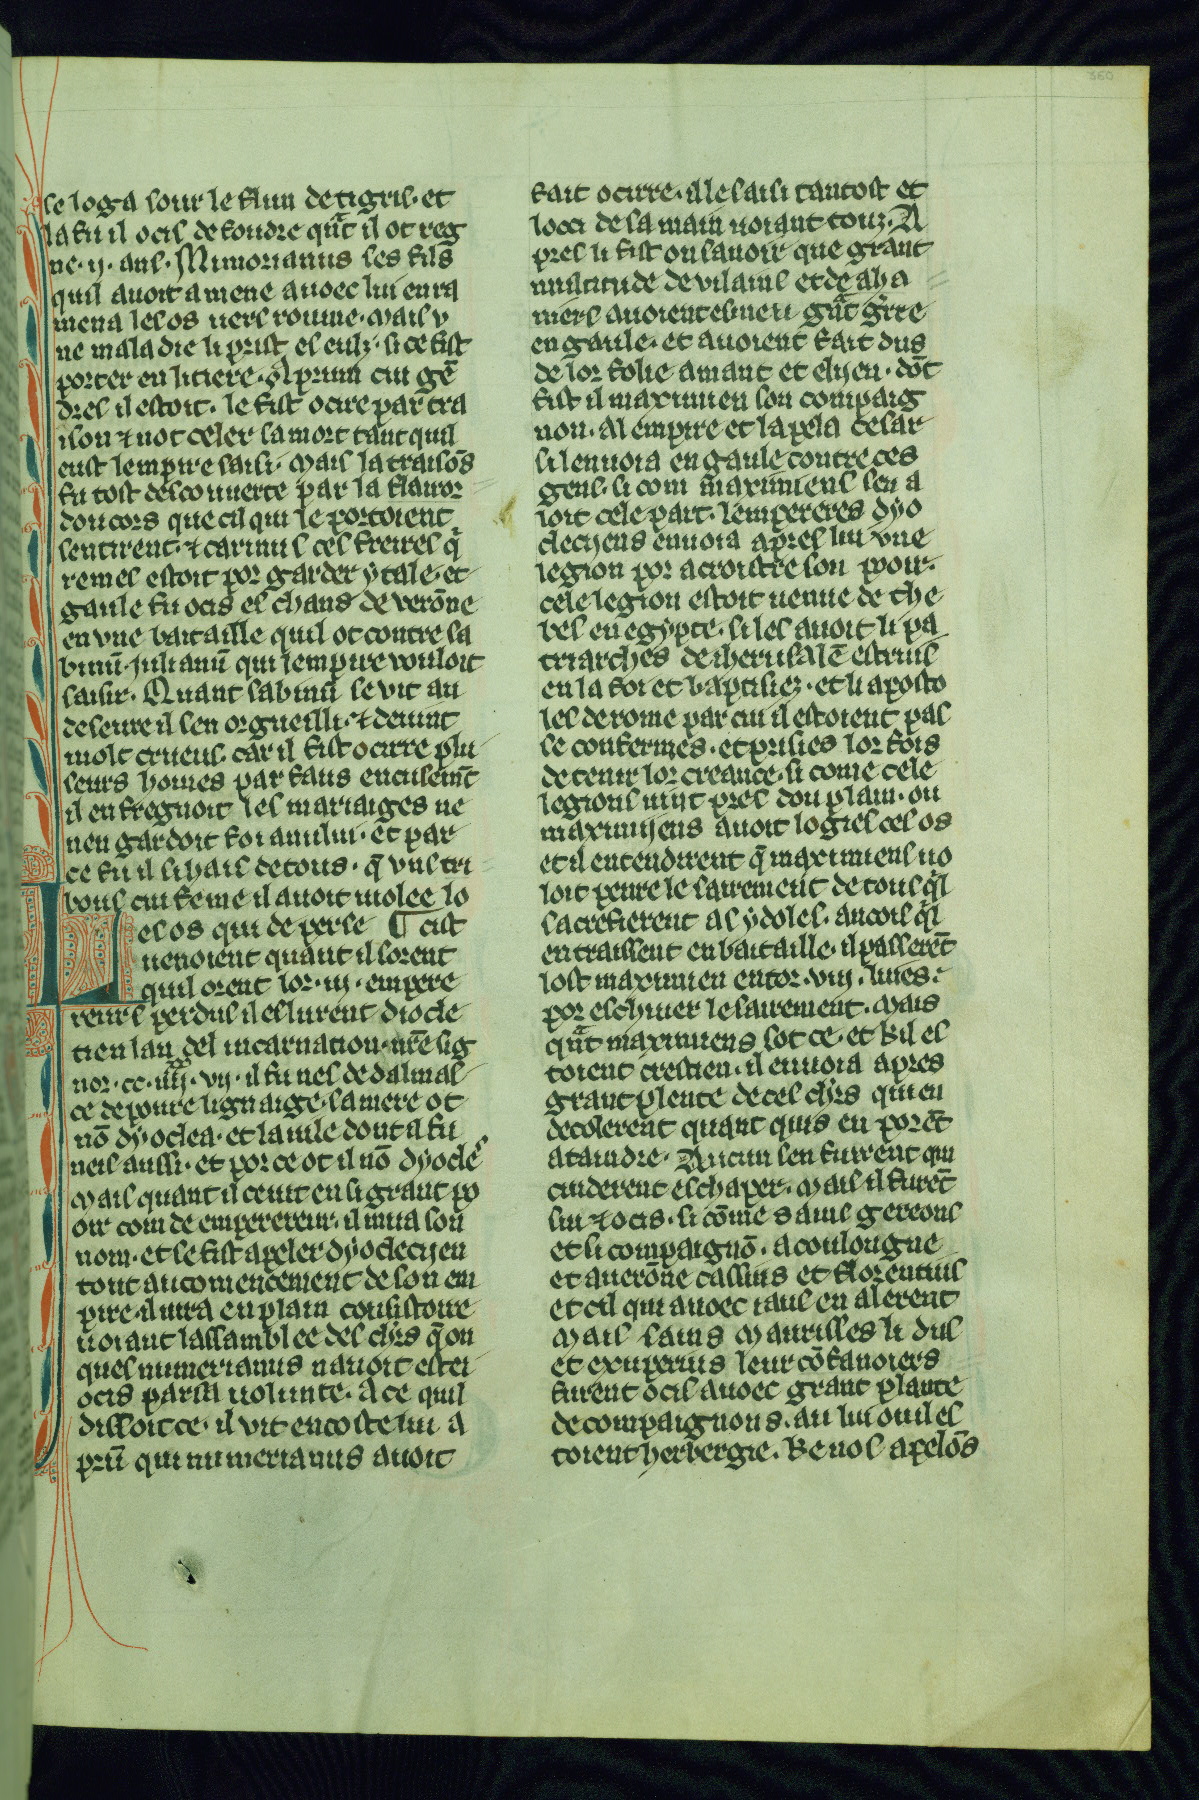 360
se loga sour le flun de tigris. et
la fu il ocis de foudre qͣ̄t il ot reg
ne .ij. ans. Mimorianus ses fils
quil auoit amene auoec lui en ra
mena les os uers roume. Mais v
ne maladie li prist es eulz. si ce fist
porter en litiere. Aprum cui gē
dres il estoit. le fist ocire par tra
ison ⁊ uot celer sa mort tant quil
eust lempire saisi. Mais la traisōs
fu tost descouuerte par la flairor
dou cors que cil qui le portoient
sentirent. ⁊ carinus ces freires q̄
remes estoit por garder ytale. et
gaule fu ocis es chans de verōne
en vne bataille quil ot contre sa
binū. iulianū qui lempire vouloit
saisir. Quant sabinū se vit au
deseure il sen orgueilli. ⁊ deuint
molt crueus. car il fist ocirre plu
seurs homes par faus encusemt̄
il enfregnoit les mariaiges ne
nen gardoit foi a nului. et par
ce fu il si hais de tous. q̄ vns tri
bous cui feme il auoit uiolee lo
el os qui de perse ¶ cist
uenoient quant il sorent
quil orent lor .iij. empere
reurs perdus il eslurent diocle
tien lan del incarnation nr̄e sig
nor .cc. iiijˣˣ. vij. il fu nes de dalmas
ce de poure lignaige. sa mere ot
nō dyoclea. et la uile dont il fu
neis aussi. et por ce ot il nō dyocle
Mais quant il ceuit en si grant po
oir com de empereeur. il mua son
nom. et se fist apeler dyoclecijen
tout au comencement de son em
pire. il iura en plain consistoire
uoiant lassamblee des chrs q̄ on
ques numerianus nauoit estei
ocis par sa uolunte. A ce quil
dissoit ce. il vit encoste lui a
prū qui numerianus auoit
fait ocirre. il le saisi tantost et
locci de sa main uoiant touz. A
pres li fist on sauoir que grant
multitude de vilains et de aha
niers auoient esmeu gͣ̄t gr̄re
en gaule. et auoient fait dus
de lor folie amant et elyen. dōt
fist il maximien son compaig
non. Al empire et lapela cesar
si lenuoia en gaule contre ces
gens. si com maximiens sen a
loit cele part. lempereres dyo
clecijens enuoia apres lui vne
legion por acroistre son pooir.
cele legion estoit uenue de the
bes en egypte. si les auoit li pa
triarches de iherusalē estruis
en la foi et baptisiez. et li aposto
les de rome par cui il estoient pas
se confermes. et prisies lor fois
de tenir lor creance. si come cele
legions uint pres dou plain. ou
maximijens auoit logies ces os
et il entendirent q̄ maximiens uo
loit penre le sairement de tous q̄l
sacrefierent as ydoles. ancois q̄l
entraissent en bataille. il passerēt
lost maximien entor .viij. liues.
por eschiuer le sairement. Mais
qͣ̄t maximiens sot ce. et kil es
toient crestien. il enuoia apres
grant plente de ces chrs qui en
decolerent quant quis en porēt
ataindre. Aucun sen furent qui
cuiderent eschaper. Mais il furēt
siui ⁊ ocis. si cōme sains gereons
et si compaignō. a coulougne
et a uerōne cassius et florentius
et cil qui auoec iaus en alerent
Mais sains Maurisses li dus
et exuperius leur cōfanoiers
furent ocis auoec grant plante
de compaignons. au liu ou il es
toient herbergie. ke nos apelōs